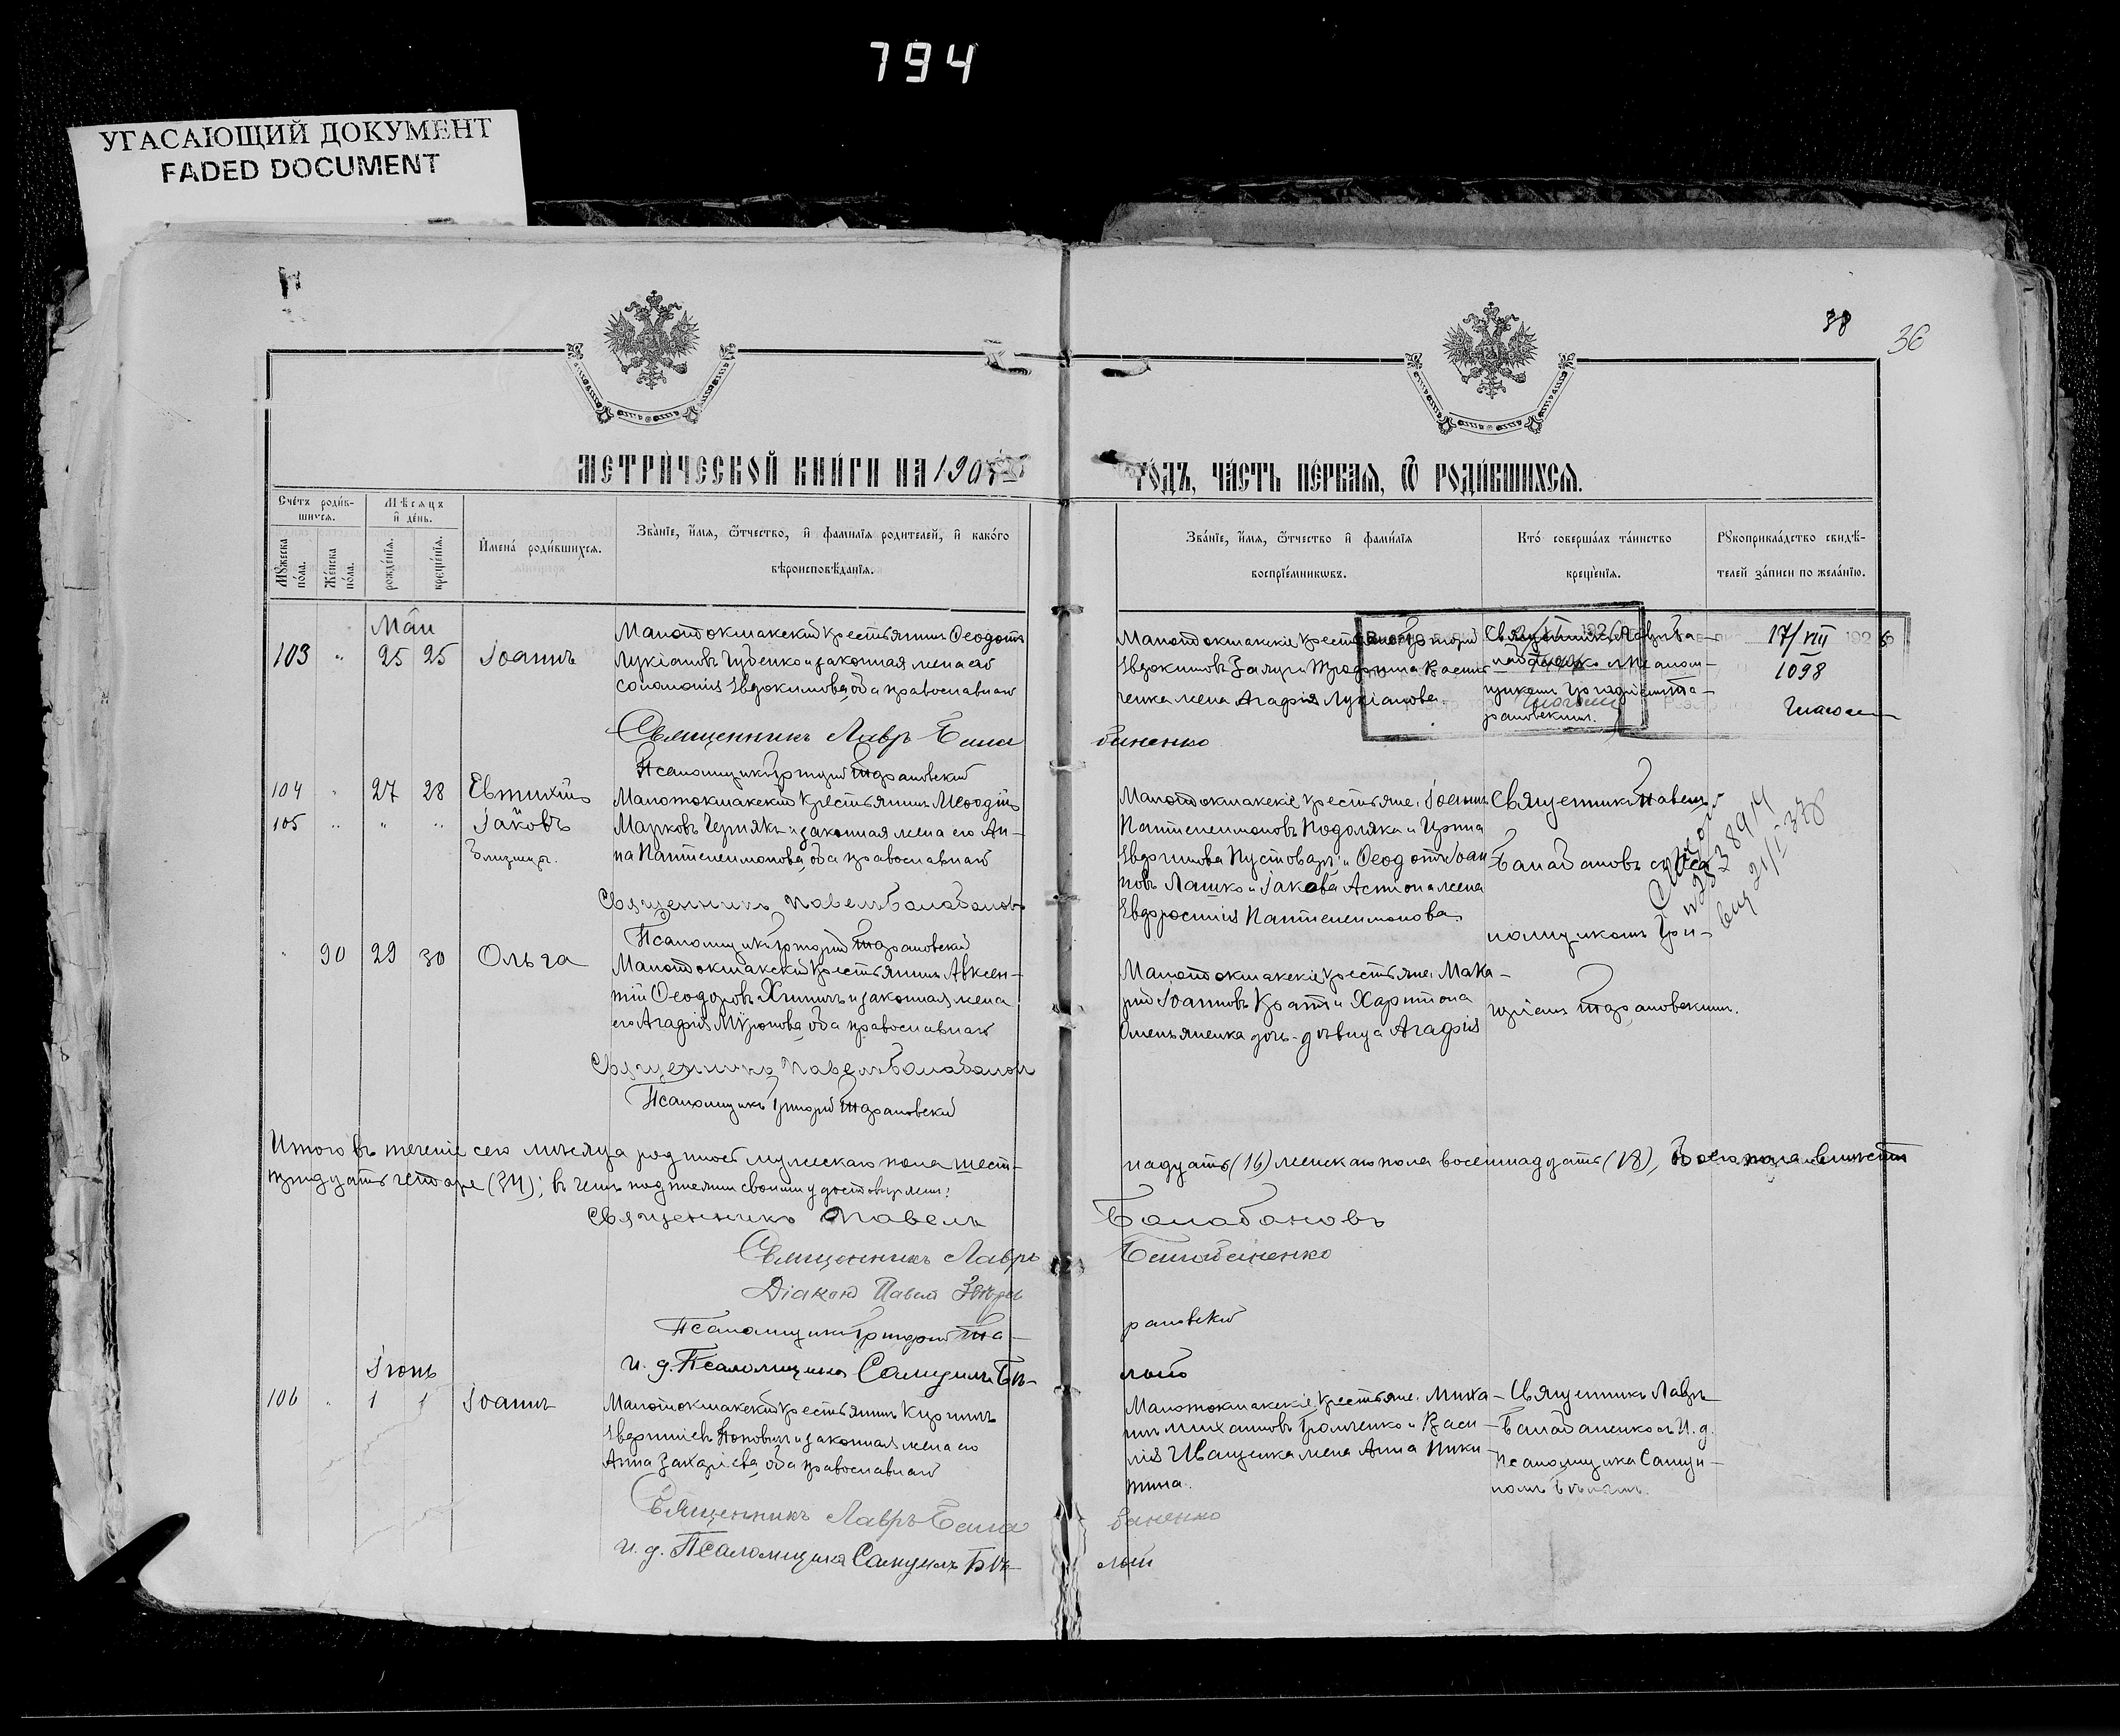 794
УГАСАЮЩИЙ ДОКУМЕНТ
FADED DOCUMENT
38
36
МЕТРИЧЕСКОЙ КНИГИ НА 190
ГОДЪ, ЧАСТЬ ПЕРВАЯ, Ѿ РОДИВШИХСЯ.
Счетъ родив-
шихся.
Мꙋжеска пола.
Женска пола.
Мѣсяцъ
и день.
рожденія.
крещенія.
Имена родившихся.
Званіе, имя, ѿчество, и фамилія родителей, и какого
вѣроисповѣданія.
Званіе, имя, ѿчество и фамилія
воспріемниковъ.
Кто совершалъ таинство
крещенія.
Рꙋкоприкладство свидѣ-
телей записи по желанію.
Маи
103 " 25 25 Іоаннъ
Малотокмакскій крестьянинъ Ѳеодотъ
Лукіановъ Губенко и законная жена его
Соломонія Евдокимова, оба православнаго
Малотокмакскіе крестьяне: Григорій
Евдокимовъ
жена Агафія Лукіанова.
Священникъ Лавръ Ба-
лабаненко
рановскимъ.
17/VIII 1926
1098
Священникъ Лавръ Бала
баненко
Псаломщикъ Григорій Тарановскій
104 " 27 28 Евтихій
105 " " " Іаковъ
близнецы.
Малотокмакскій крестьянинъ Меѳодій
Марковъ Чернякъ и законная жена его Ан-
на Пантелеимонова, оба православнаго
Малотокмакскіе крестьяне: Іоаннъ
Пантелеимоновъ Подоляка и Ирина
Пустоваръ; и Ѳеодотъ Іоан
новъ Лашко и Іакова жена
Евфросинія Пантелеимонова.
Священникъ Павелъ
Балабановъ съ Пса
ломщикомъ Гри-
горіемъ Тарановскимъ.
Священникъ Павелъ Балабановъ
Псаломщикъ Григорій Тарановскій
" 90 29 30 Ольга
Малотокмакскій крестьянинъ Авксен-
тій Ѳеодоровъ и законная жена
его Агафія Мѵронова, оба православнаго
Малотокмакскіе крестьяне: Мака-
рій Іоанновъ Кратъ и Харитона
Омельяненка дочь-дѣвица Агафія
Священникъ Павелъ Балабановъ
Псаломщикъ Григорій Тарановскій
Итого въ теченіе сего мѣсяца родилось мужескаго пола шест-
надцать (16) женскаго пола восемнадцать (18), Обоего пола вмѣстѣ
тридцать четыре (34); въ чемъ подписями своими удостовѣряемъ:
Священникъ Павелъ Балабановъ
Священникъ Лавръ Балабаненко
Діаконъ Павелъ
Псаломщикъ Григорій Та-
рановскій
и. д. Псаломщика Самуилъ Бѣ-
лый
Іюнь
106 " 1 1 Іоаннъ
Малотокмакскій крестьянинъ Кириллъ
Поповичъ и законная жена его
Анна Захаріева, оба православнаго
Малотокмакскіе крестьяне: Миха-
илъ Михаиловъ Громченко и Васи-
лія Иващенка жена Анна Ники-
тина.
Священникъ Лавръ
Балабаненко съ И. д.
Псаломщика Самуи-
ломъ Бѣлымъ.
Священникъ Лавръ Бала
баненко
и. д. Псаломщика Самуилъ Бѣ-
лый